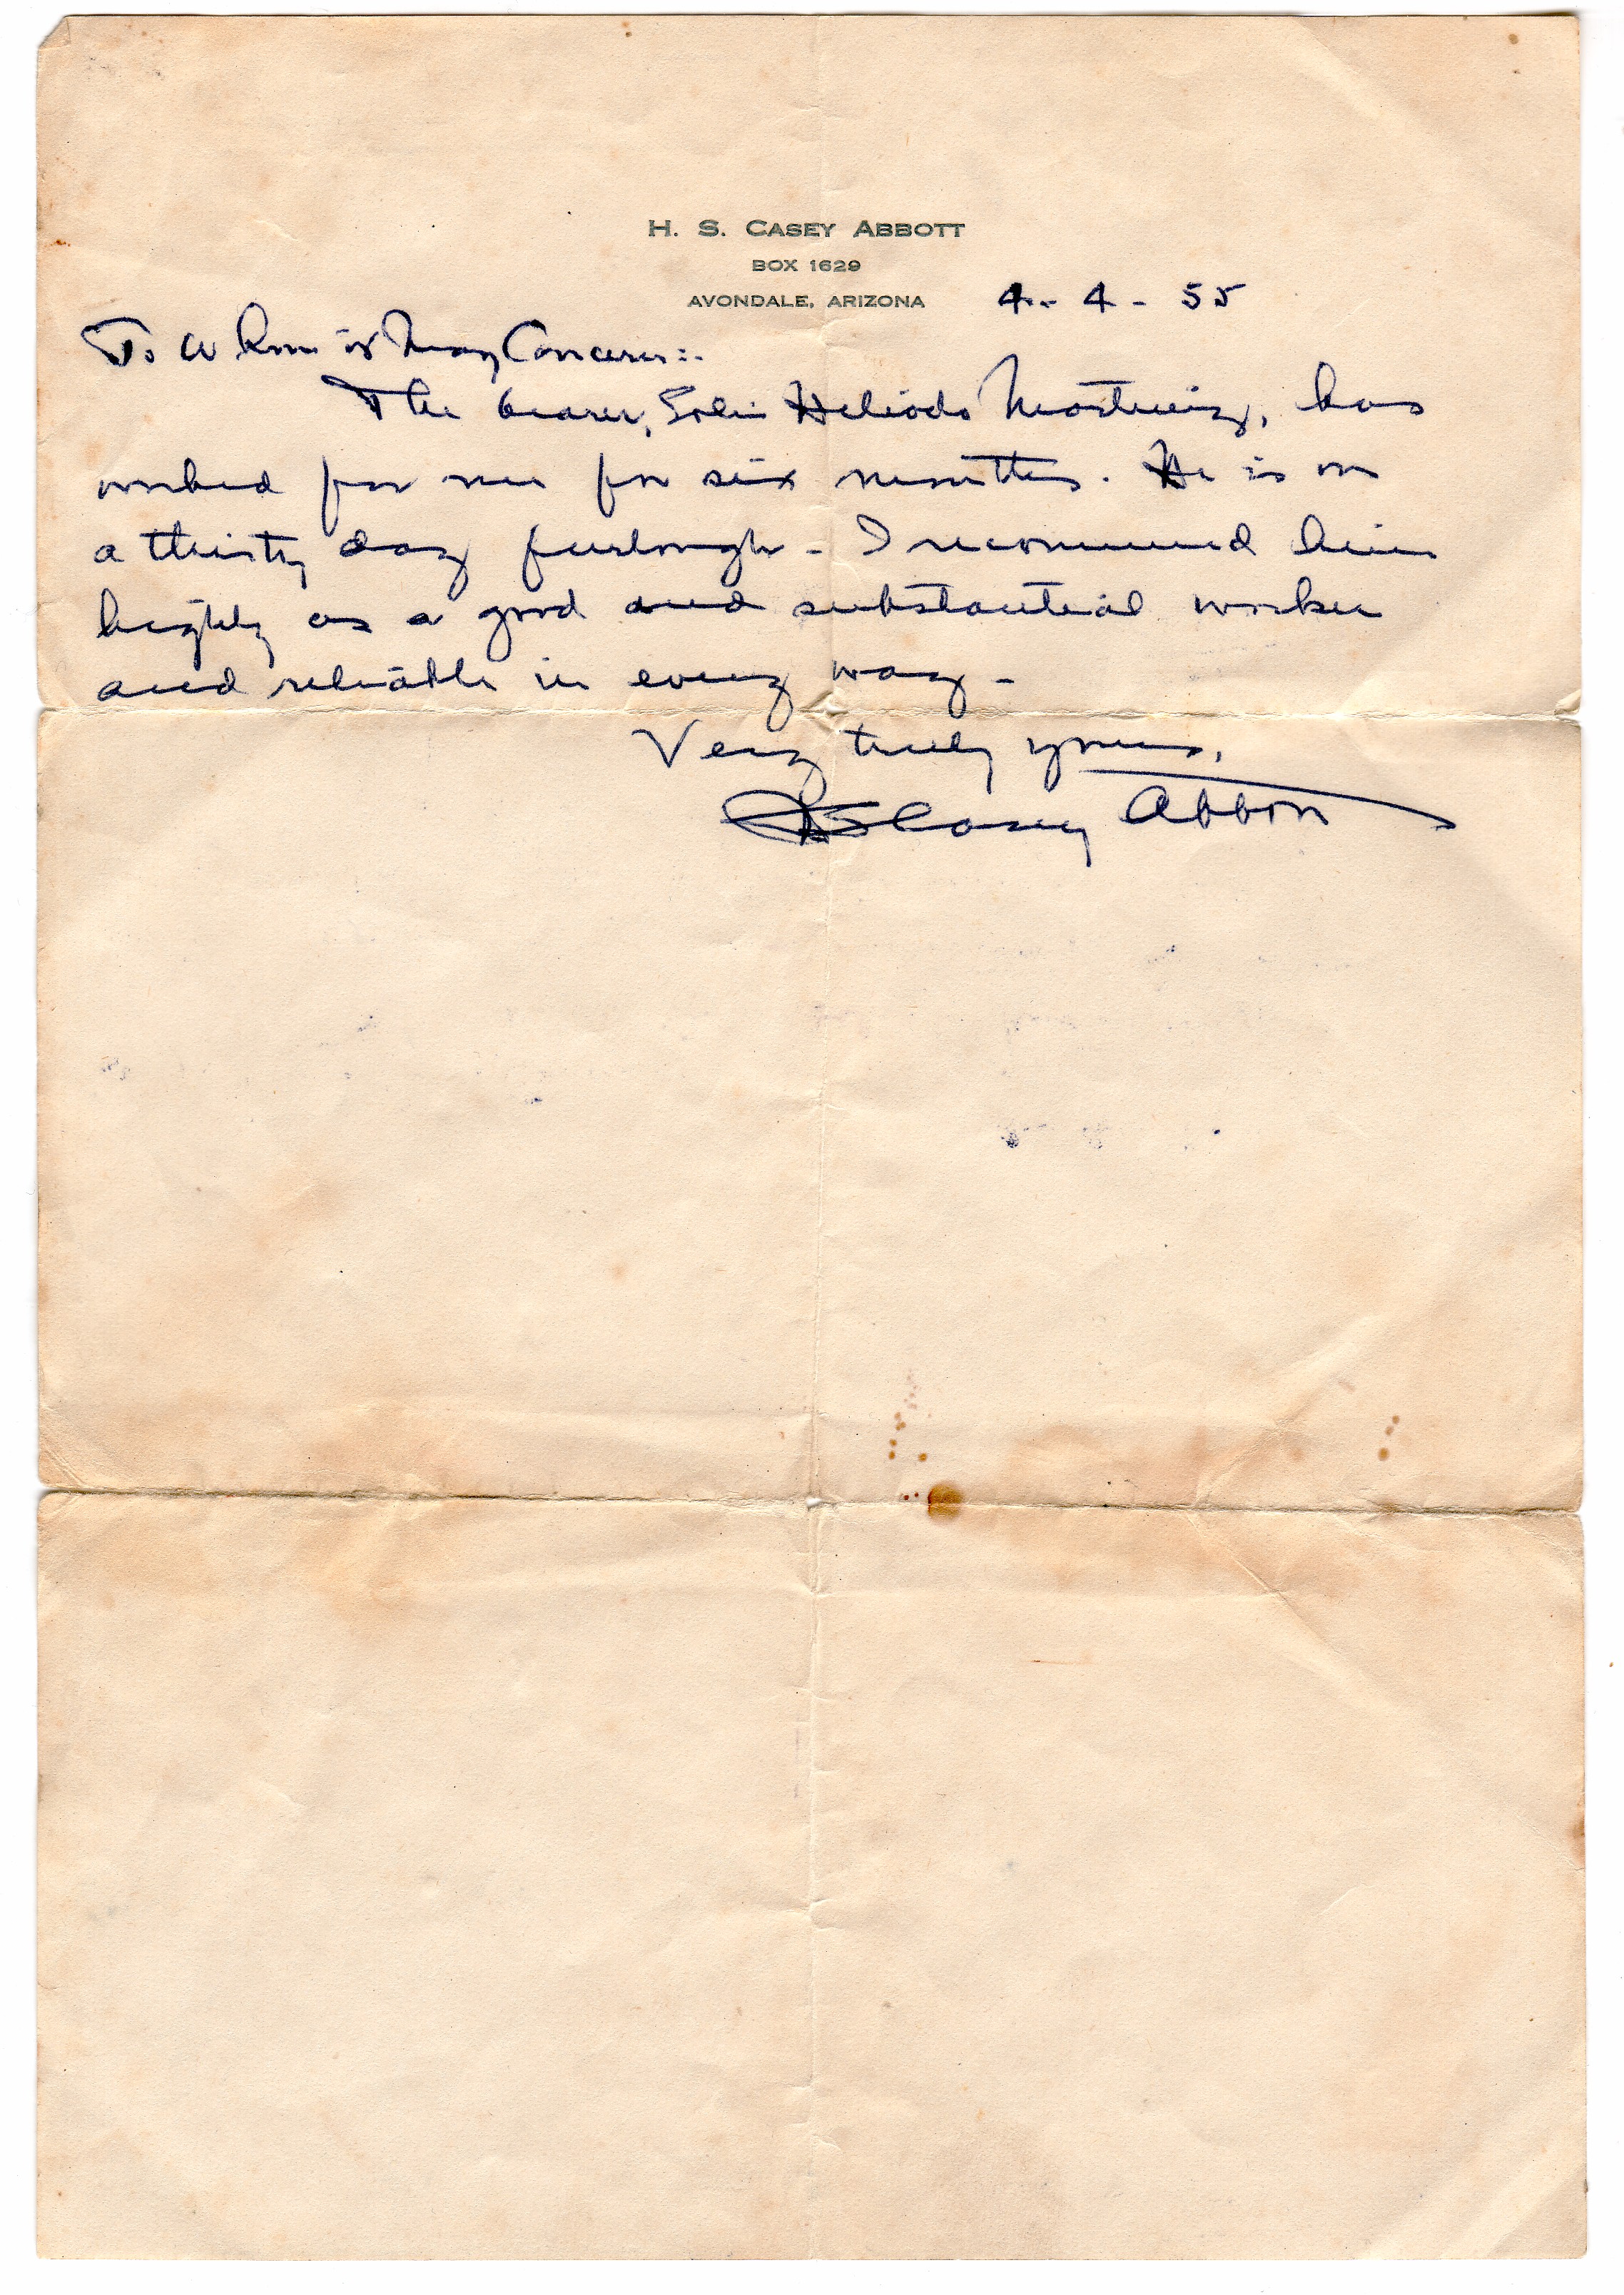 H. S. CASEY ABBOTT
BOX 1629
AVONDALE, ARIZONA 4-4-55
To Whom it May Concern:-
The bearer, Heliodo Martinez, has
worked for me for six months. He is on
a thirty day furlough - I recommend him
highly as a good and substantial worker
and reliable in every way -
Very truly yours,
HS Casey Abbott